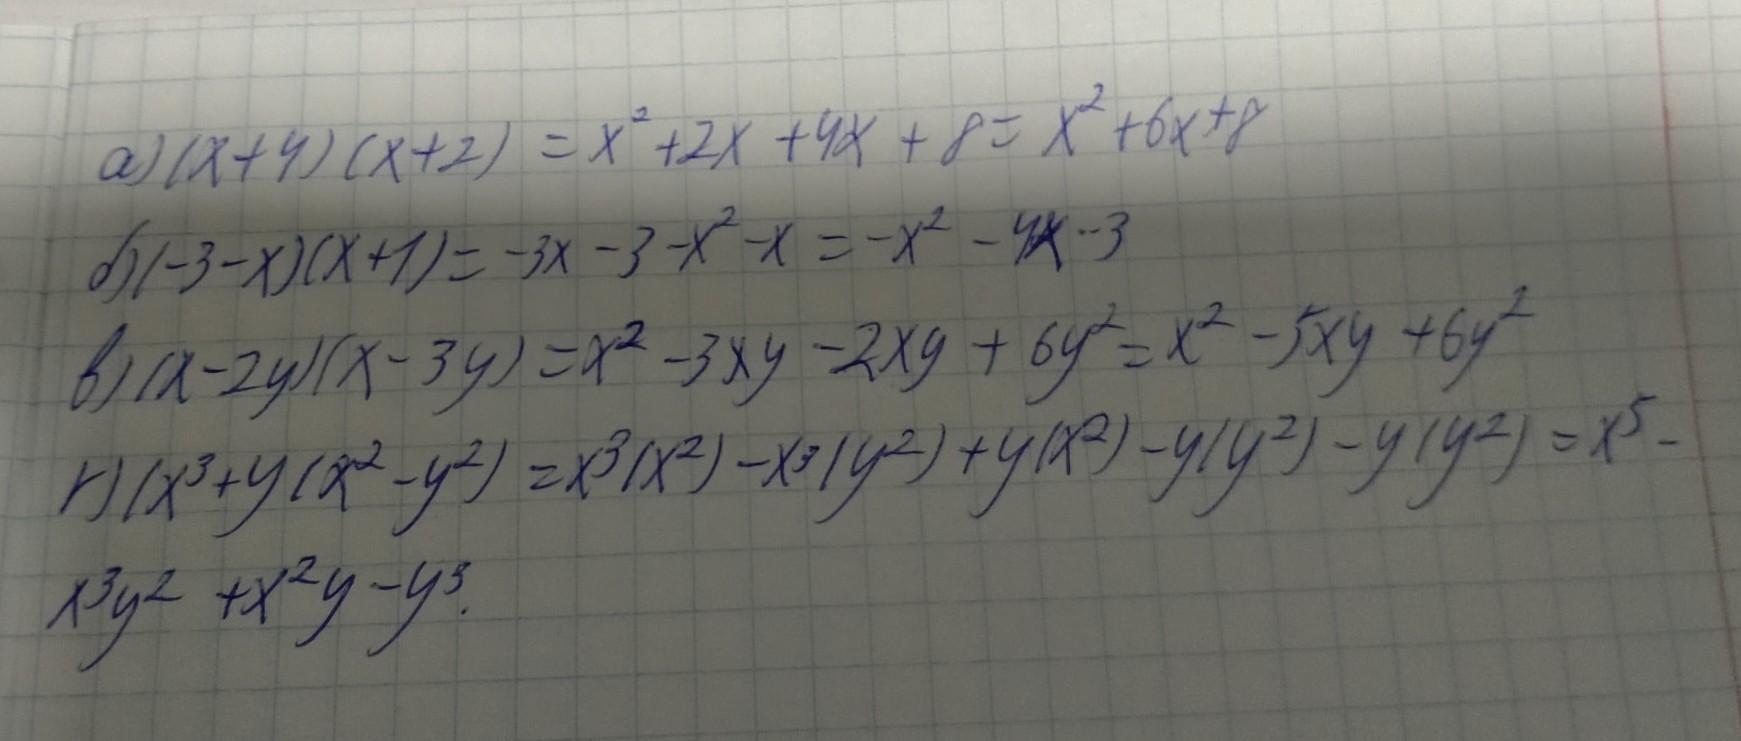 а) (x+4) (x+2) = x² +2x +4x + 8 = x² +6x+8
б) (-3-x)(x+1) = -3x -3 -x² -x = -x² -4x -3
в) (x-2y)(x-3y) = x² -3xy -2xy + 6y² = x² -5xy +6y²
г) (x³+y(x²-y²) = x³(x²) -x³(y²) +y(x²) -y(y²) -y(y²) = x⁵ -
x³y² +x²y -y³.